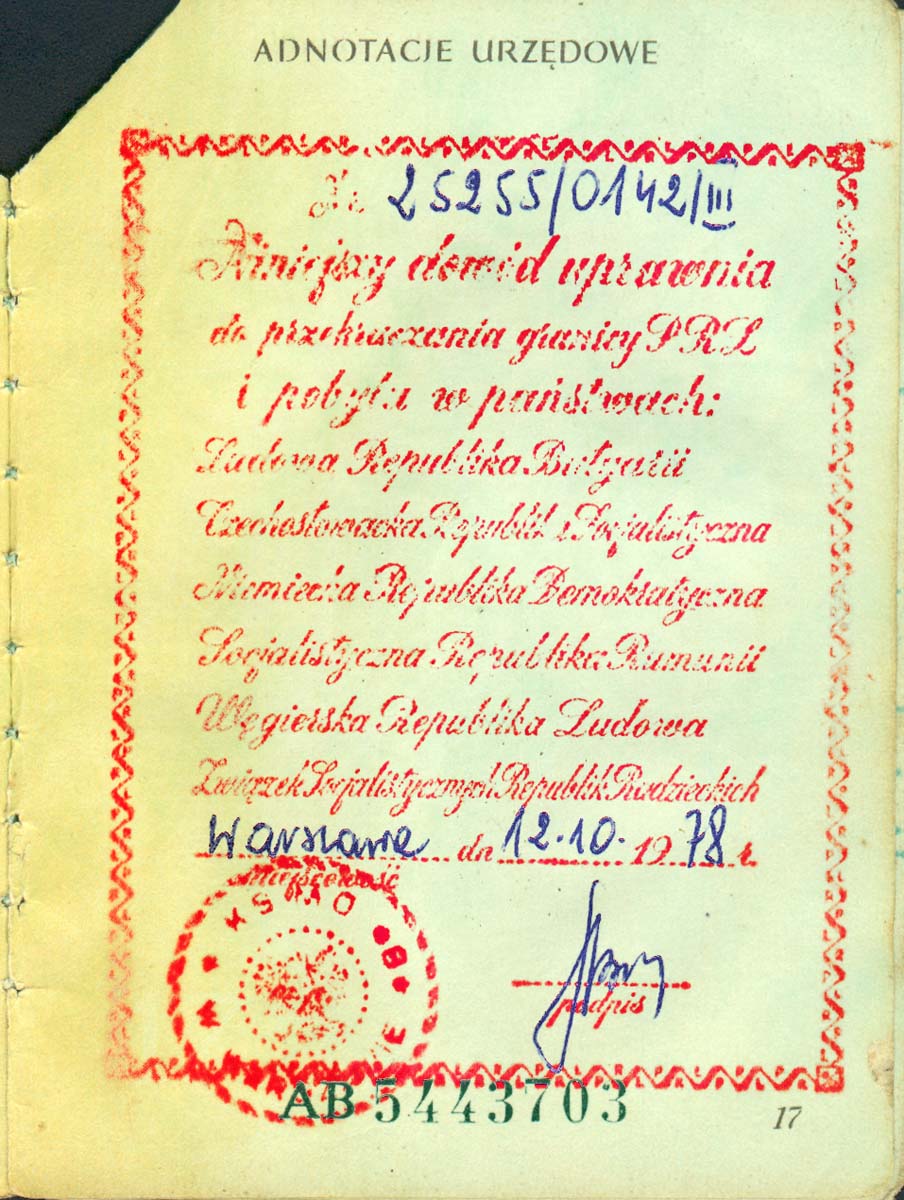 ADNOTACJE URZĘDOWE
Nr 25255/0142/III
Niniejszy dowód uprawnia
do przekraczania granicy PRL
i pobytu w państwach:
Ludowa Republika Bułgarii
Czechosłowacka Republika Socjalistyczna
Niemiecka Republika Demokratyczna
Socjalistyczna Republika Rumunii
Węgierska Republika Ludowa
Związek Socjalistycznych Republik Radzieckich
Warszawa dn 12.10. 1978 r.
miejscowość
podpis
AB 5443703
17